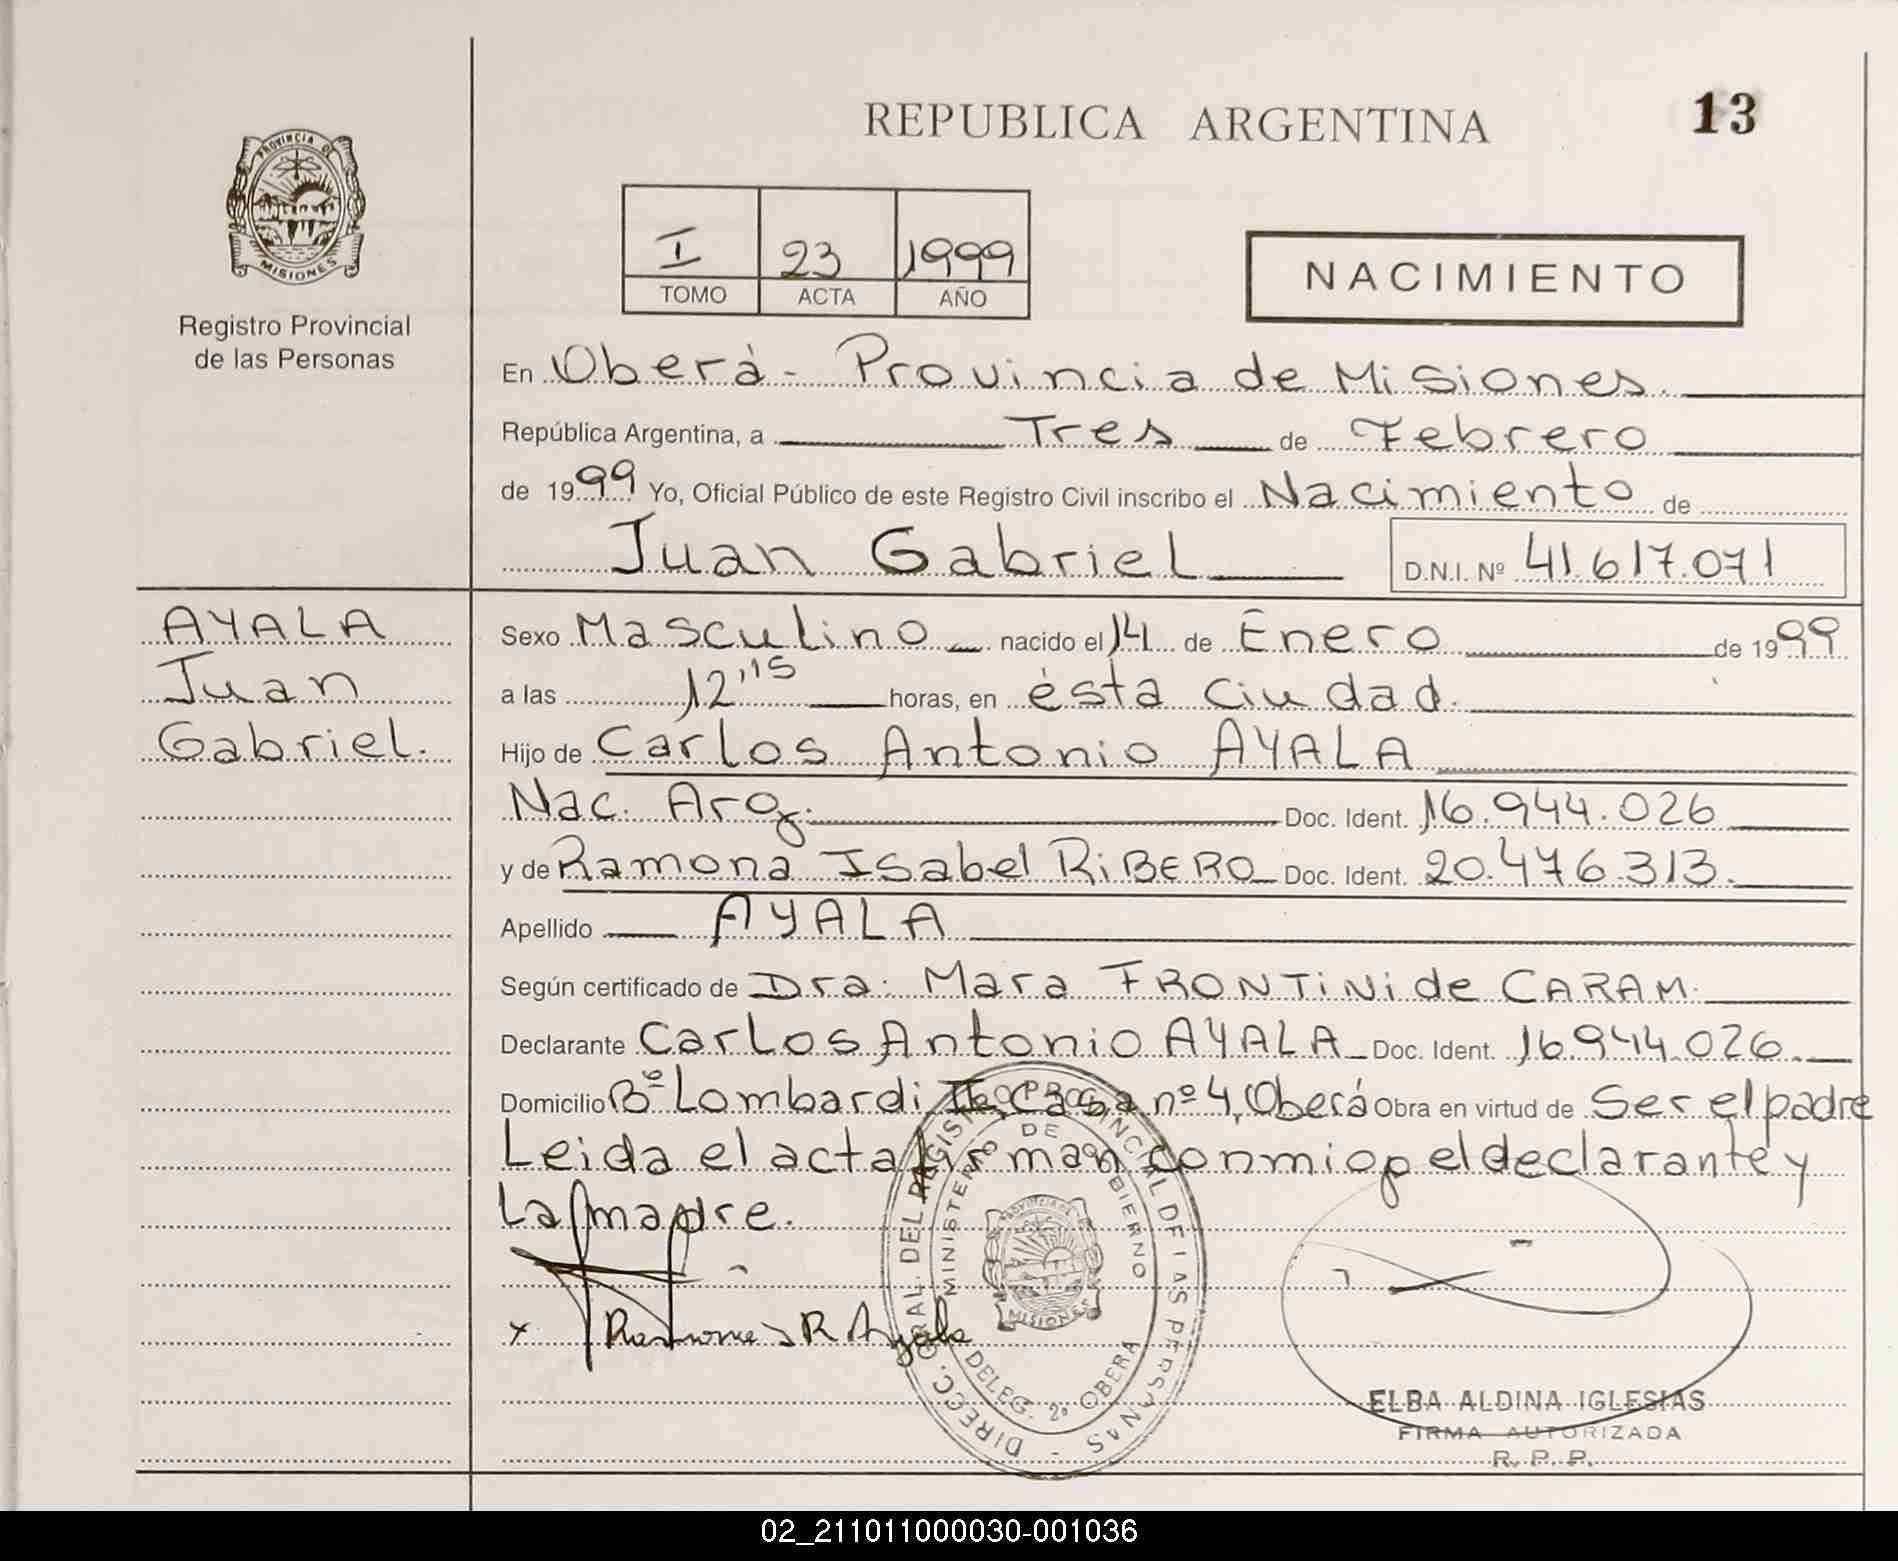 REPUBLICA ARGENTINA
13
PROVINCIA DE
MISIONES
Registro Provincial
de las Personas
I 23 1999
TOMO ACTA AÑO
NACIMIENTO
En Oberá - Provincia de Misiones.
República Argentina, a Tres de Febrero
de 1999 Yo, Oficial Público de este Registro Civil inscribo el Nacimiento de
Juan Gabriel D.N.I. Nº 41.617.071
AYALA
Juan
Gabriel.
Sexo Masculino nacido el 14 de Enero de 1999
a las 12,15 horas, en ésta ciudad.
Hijo de Carlos Antonio AYALA
Nac. Arg. Doc. Ident. 16.944.026
y de Ramona Isabel RiBERO Doc. Ident. 20.476.313.
Apellido AYALA
Según certificado de Dra. Mara FRONTiNi de CARAM.
Declarante Carlos Antonio AYALA Doc. Ident. 16.944.026.
Domicilio Bº Lombardi II, Casa nº 4, Oberá Obra en virtud de Ser el padre
Leida el acta firman conmigo el declarante y
La madre.
x Ramona I R Ayala
DIRECC. GRAL. DEL REGISTRO PROVINCIAL DE LAS PERSONAS
MINISTERIO DE GOBIERNO
MISIONES
DELEG. 2ª OBERA
ELBA ALDINA IGLESIAS
FIRMA AUTORIZADA
R. P. P.
02_211011000030-001036